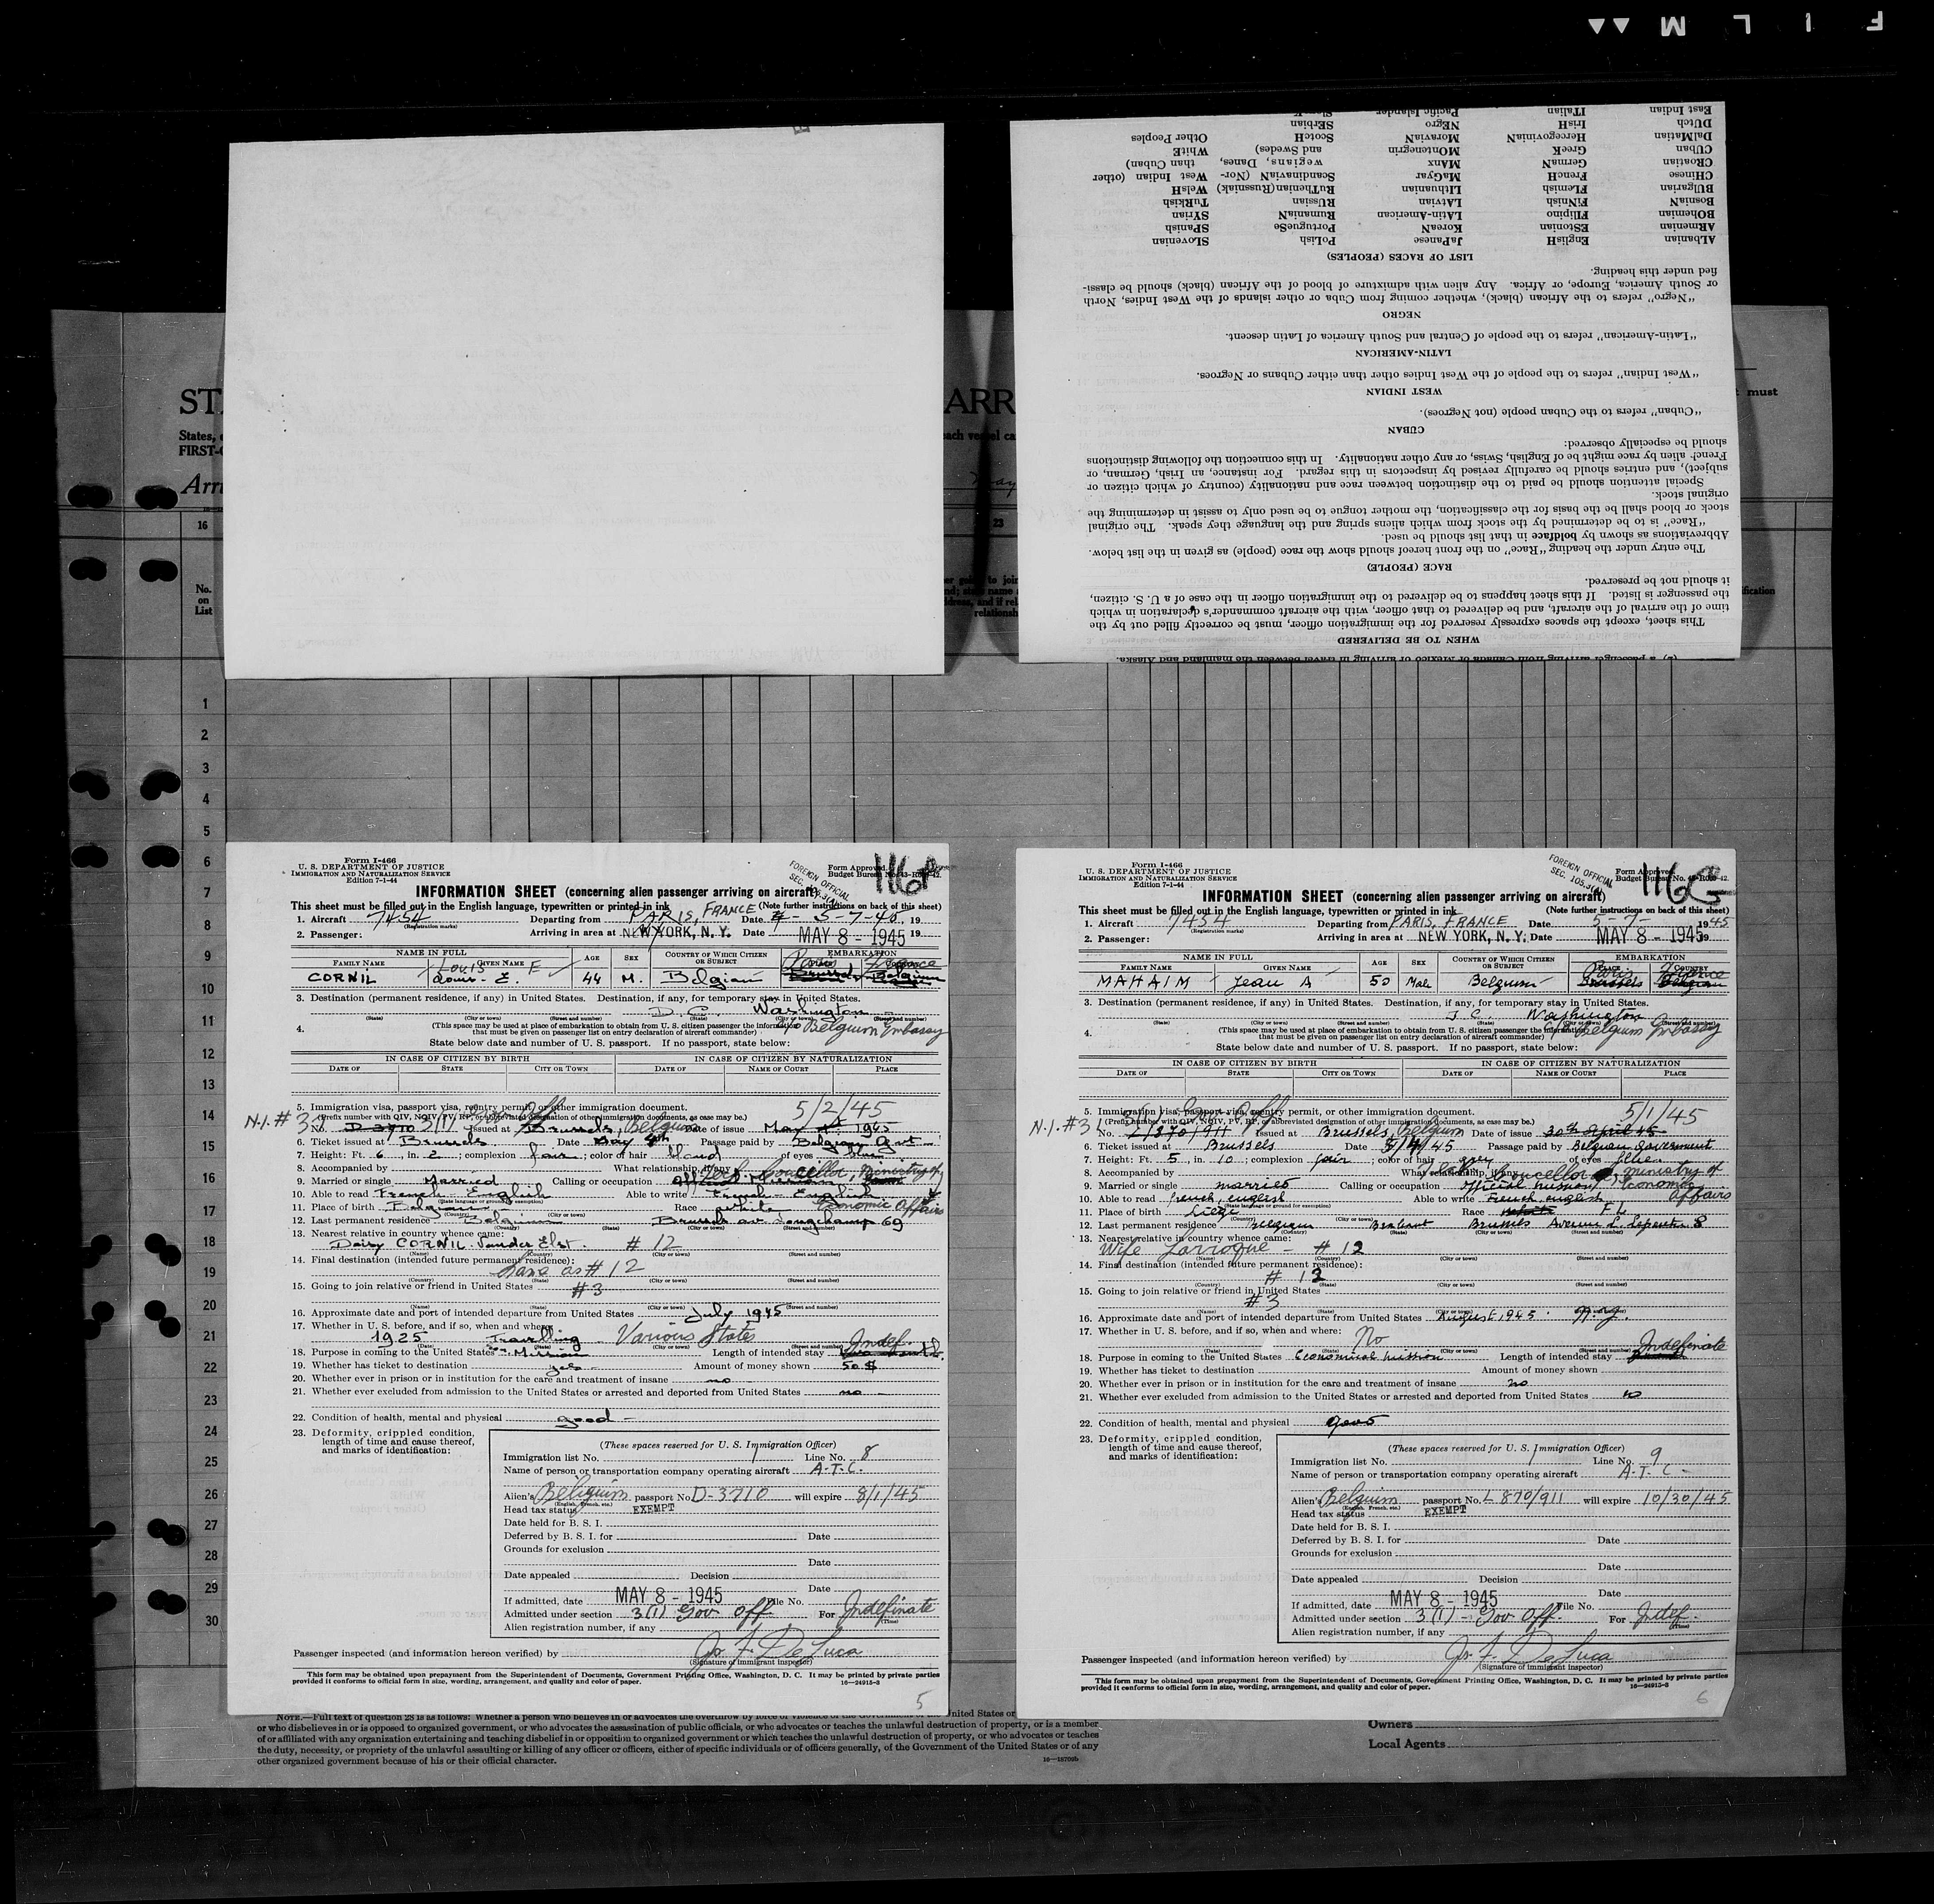 F I L M
ST
ARR
must
States,
each vessel
FIRST-
Arri
May
16
23
No.
on
List
1
2
3
4
5
6
7
8
9
10
11
12
13
14
15
16
17
18
19
20
21
22
23
24
25
26
27
28
29
30
WHEN TO BE DELIVERED
This sheet, except the spaces expressly reserved for the immigration officer, must be correctly filled out by the
time of the arrival of the aircraft, and be delivered to that officer, with the aircraft commander's declaration in which
the passenger is listed. If this sheet happens to be delivered to the immigration officer in the case of a U. S. citizen,
it should not be preserved.
RACE (PEOPLE)
The entry under the heading "Race" on the front hereof should show the race (people) as given in the list below.
Abbreviations as shown by boldface in that list should be used.
"Race" is to be determined by the stock from which aliens spring and the language they speak. The original
stock or blood shall be the basis for the classification, the mother tongue to be used only to assist in determining the
original stock.
Special attention should be paid to the distinction between race and nationality (country of which citizen or
subject), and entries should be carefully revised by inspectors in this regard. For instance, an Irish, German, or
French alien by race might be of English, Swiss, or any other nationality. In this connection the following distinctions
should be especially observed:
CUBAN
"Cuban" refers to the Cuban people (not Negroes).
WEST INDIAN
"West Indian" refers to the people of the West Indies other than either Cubans or Negroes.
LATIN-AMERICAN
"Latin-American" refers to the people of Central and South America of Latin descent.
NEGRO
"Negro" refers to the African (black), whether coming from Cuba or other islands of the West Indies, North
or South America, Europe, or Africa. Any alien with admixture of blood of the African (black) should be classi-
fied under this heading.
LIST OF RACES (PEOPLES)
ALbanian EnglisH JaPanese PoLish SLOvenian
ARmenian EStonian KoreaN PortugueSe SPanish
BOhemian FIlipino LAtin-American RumaniaN SYrian
BOsniaN FiNnish LAtvian RUssian TurKish
BUlgarian FLemish LIthuanian RuThenian (Russniak) WelsH
CHinese FrencH MaGyar ScandinaviaN (Nor- West Indian (other
CRoatian GermaN MAnx wegians, Danes, than Cuban)
CUban GreeK MOntenegrin and Swedes) WhitE
DalMatian HercegoviniaN MoraviaN ScotcH Other Peoples
DUtch IrisH NEgro SErbian
East Indian ITalian Pacific Islander Slovak
Form I-466
U. S. DEPARTMENT OF JUSTICE
IMMIGRATION AND NATURALIZATION SERVICE
Edition 7-1-44
FOREIGN OFFICIAL
Form Approved.
116
INFORMATION SHEET (concerning alien passenger arriving on aircraft)
This sheet must be filled out in the English language, typewritten or printed in ink (Note further instructions on back of this sheet)
1. Aircraft 7454 Departing from PARIS, FRANCE Date 5-7-45, 19
(Registration marks)
2. Passenger: Arriving in area at NEW YORK, N. Y. Date MAY 8 - 1945 19
NAME IN FULL AGE SEX COUNTRY OF WHICH CITIZEN OR SUBJECT EMBARKATION
FAMILY NAME GIVEN NAME
CORNIL Louis E. 44 M. Belgian Paris France
3. Destination (permanent residence, if any) in United States. Destination, if any, for temporary stay in United States.
D.C. Washington
c/o Belgium Embassy
4. (This space may be used at place of embarkation to obtain from U. S. citizen passenger the information
that must be given on passenger list on entry declaration of aircraft commander)
State below date and number of U. S. passport. If no passport, state below:
IN CASE OF CITIZEN BY BIRTH IN CASE OF CITIZEN BY NATURALIZATION
DATE OF STATE CITY OR TOWN DATE OF NAME OF COURT PLACE
5. Immigration visa, passport visa, reentry permit, or other immigration document. 5/2/45
(Prefix number with QIV, NQIV, PV, RP, or abbreviated designation of other immigration documents, as case may be.)
N.I. #3 No. D-3710 3(1) Issued at Brussels, Belgium Date of issue May 1945
6. Ticket issued at Brussels Date May 4th Passage paid by Belgian Govt
7. Height: Ft. 6, in. 2; complexion fair; color of hair bland of eyes blue
8. Accompanied by What relationship, if any
9. Married or single Married Calling or occupation Ministry of Economic Affairs
10. Able to read French - English Able to write French - English
11. Place of birth Belgium Race white
12. Last permanent residence Belgium Brussels av. Longchamp 69
13. Nearest relative in country whence came:
Daisy CORNIL Vander Elst. #12
14. Final destination (intended future permanent residence):
Same as #12
15. Going to join relative or friend in United States #3
16. Approximate date and port of intended departure from United States July 1945
17. Whether in U. S. before, and if so, when and where:
1925 Travelling Various States
18. Purpose in coming to the United States Mission Length of intended stay Indef.
19. Whether has ticket to destination yes Amount of money shown 50 $
20. Whether ever in prison or in institution for the care and treatment of insane no
21. Whether ever excluded from admission to the United States or arrested and deported from United States no
22. Condition of health, mental and physical good
23. Deformity, crippled condition,
length of time and cause thereof,
and marks of identification:
(These spaces reserved for U. S. Immigration Officer)
Immigration list No. 1 Line No. 8
Name of person or transportation company operating aircraft A.T.C.
Alien's Belgium passport No. D-3710 will expire 8/1/45
Head tax status EXEMPT
Date held for B. S. I.
Deferred by B. S. I. for Date
Grounds for exclusion
Date
Date appealed Decision
Date
If admitted, date MAY 8 - 1945 File No.
Admitted under section 3(1) Gov Off. For Indefinate
Alien registration number, if any
Passenger inspected (and information hereon verified) by Js. F. De Luca
(Signature of immigrant inspector)
This form may be obtained upon prepayment from the Superintendent of Documents, Government Printing Office, Washington, D. C. It may be printed by private parties
provided it conforms to official form in size, wording, arrangement, and quality and color of paper. 16—24915-3
5
Form I-466
U. S. DEPARTMENT OF JUSTICE
IMMIGRATION AND NATURALIZATION SERVICE
Edition 7-1-44
FOREIGN OFFICIAL
Form Approved.
116
INFORMATION SHEET (concerning alien passenger arriving on aircraft)
This sheet must be filled out in the English language, typewritten or printed in ink (Note further instructions on back of this sheet)
1. Aircraft 7454 Departing from PARIS, FRANCE Date 5-7- 1945
(Registration marks)
2. Passenger: Arriving in area at NEW YORK, N. Y. Date MAY 8 - 1945 19
NAME IN FULL AGE SEX COUNTRY OF WHICH CITIZEN OR SUBJECT EMBARKATION
FAMILY NAME GIVEN NAME PLACE COUNTRY
MAHAIM Jean A 50 Male Belgium Paris France
3. Destination (permanent residence, if any) in United States. Destination, if any, for temporary stay in United States.
Washington
Belgium Embassy
4. (This space may be used at place of embarkation to obtain from U. S. citizen passenger the information
that must be given on passenger list on entry declaration of aircraft commander)
State below date and number of U. S. passport. If no passport, state below:
IN CASE OF CITIZEN BY BIRTH IN CASE OF CITIZEN BY NATURALIZATION
DATE OF STATE CITY OR TOWN DATE OF NAME OF COURT PLACE
5. Immigration visa, passport visa, reentry permit, or other immigration document. 5/1/45
(Prefix number with QIV, NQIV, PV, RP, or abbreviated designation of other immigration documents, as case may be.)
N.I. #31 No. 3(1) Gov Off Issued at Brussels, Belgium Date of issue 30th April 45
6. Ticket issued at Brussels Date 5/4/45 Passage paid by Belgian Government
7. Height: Ft. 5, in. 10; complexion fair; color of hair grey of eyes
8. Accompanied by What relationship, if any
9. Married or single married Calling or occupation official mission Ministry of Economic Affairs
10. Able to read french, english Able to write French, english
11. Place of birth Liège Race white FL
12. Last permanent residence Belgium Brabant Brussels Avenue L. Lepoutre 8
13. Nearest relative in country whence came:
Wife Larroque - #12
14. Final destination (intended future permanent residence):
#12
15. Going to join relative or friend in United States
#3
16. Approximate date and port of intended departure from United States August 1945 N.Y.
17. Whether in U. S. before, and if so, when and where: No
18. Purpose in coming to the United States Economical mission Length of intended stay Indefinate
19. Whether has ticket to destination Amount of money shown
20. Whether ever in prison or in institution for the care and treatment of insane no
21. Whether ever excluded from admission to the United States or arrested and deported from United States no
22. Condition of health, mental and physical good
23. Deformity, crippled condition,
length of time and cause thereof,
and marks of identification:
(These spaces reserved for U. S. Immigration Officer)
Immigration list No. 1 Line No. 9
Name of person or transportation company operating aircraft A.T.C.
Alien's Belgium passport No. L 870/911 will expire 10/30/45
Head tax status EXEMPT
Date held for B. S. I.
Deferred by B. S. I. for Date
Grounds for exclusion
Date
Date appealed Decision
Date
If admitted, date MAY 8 - 1945 File No.
Admitted under section 3(1) - Gov Off. For Indef.
Alien registration number, if any
Passenger inspected (and information hereon verified) by Js. F. De Luca
(Signature of immigrant inspector)
This form may be obtained upon prepayment from the Superintendent of Documents, Government Printing Office, Washington, D. C. It may be printed by private parties
provided it conforms to official form in size, wording, arrangement, and quality and color of paper. 16—24915-3
6
NOTE.—Full text of question 28 is as follows: Whether a person who believes in or advocates the overthrow by force or violence of the Government of the United States or
or who disbelieves in or is opposed to organized government, or who advocates the assassination of public officials, or who advocates or teaches the unlawful destruction of property, or is a member
of or affiliated with any organization entertaining and teaching disbelief in or opposition to organized government or which teaches the unlawful destruction of property, or who advocates or teaches
the duty, necessity, or propriety of the unlawful assaulting or killing of any officer or officers, either of specific individuals or of officers generally, of the Government of the United States or of any
other organized government because of his or their official character. 16—18709b
Owners
Local Agents